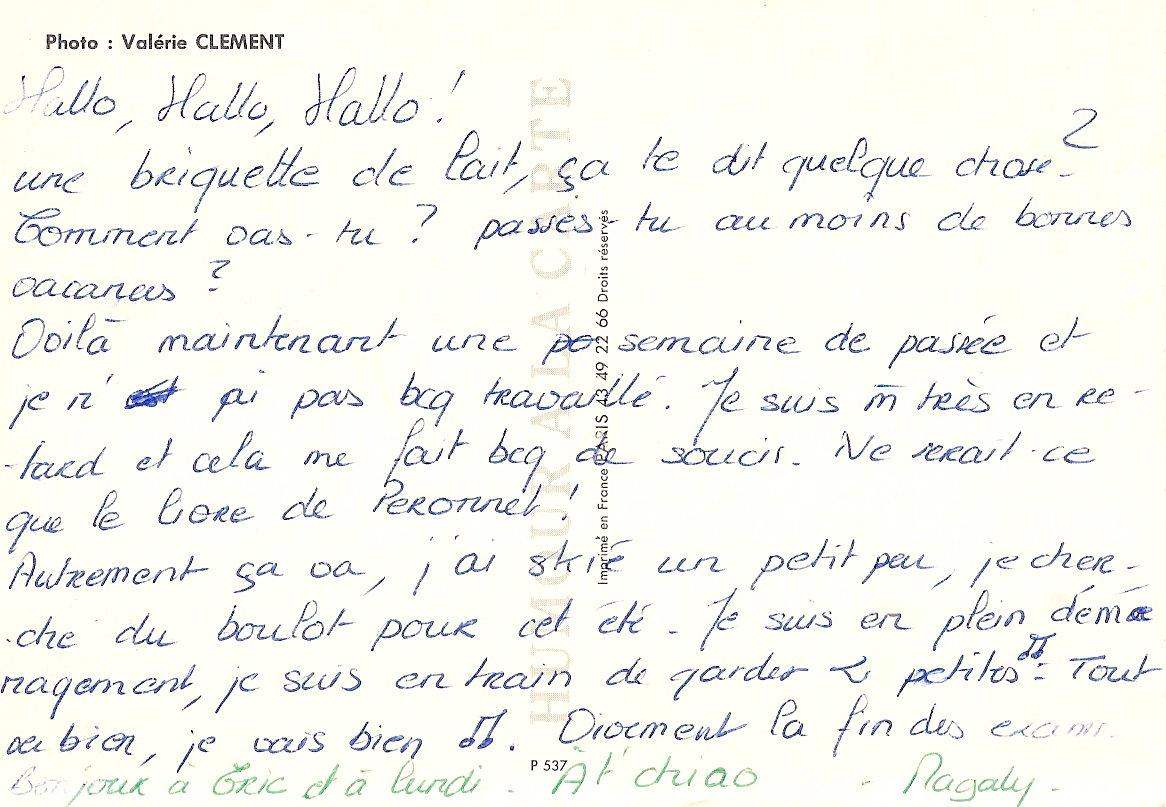 Photo : Valérie CLEMENT
Hallo, Hallo, Hallo !
une briquette de lait, ça te dit quelque chose ?
Comment vas-tu ? passes-tu au moins de bonnes
vacances ?
Voilà maintenant une po semaine de passée et
je n' ai pas bcq travaillé. Je suis m̄ très en re-
-tard et cela me fait bcq de soucis. Ne serait-ce
que le livre de Peronnet !
Autrement ça va, j'ai skié un petit peu, je cher-
-che du boulot pour cet été. Je suis en plein démé
nagement, je suis en train de garder 2 petites ♫. Tout
va bien, je vais bien ♫. Vivement la fin des exam.
Bonjour à Eric et à lundi. À t' chiao - Magaly -
P 537
HUMOUR A LA CARTE
Imprimé en France PARIS 43 49 22 66 Droits réservés